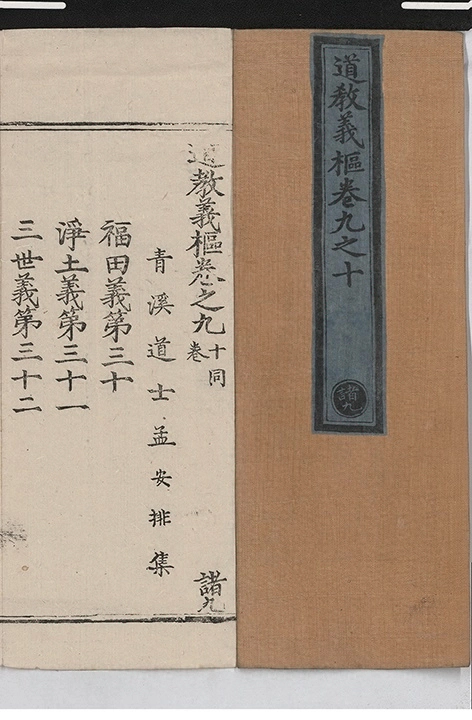 道教義樞卷九之十
諸九
道教義樞卷之九
十同
卷
青溪道士孟安排集
福田義第三十
淨土義第三十一
三世義第三十二
諸九